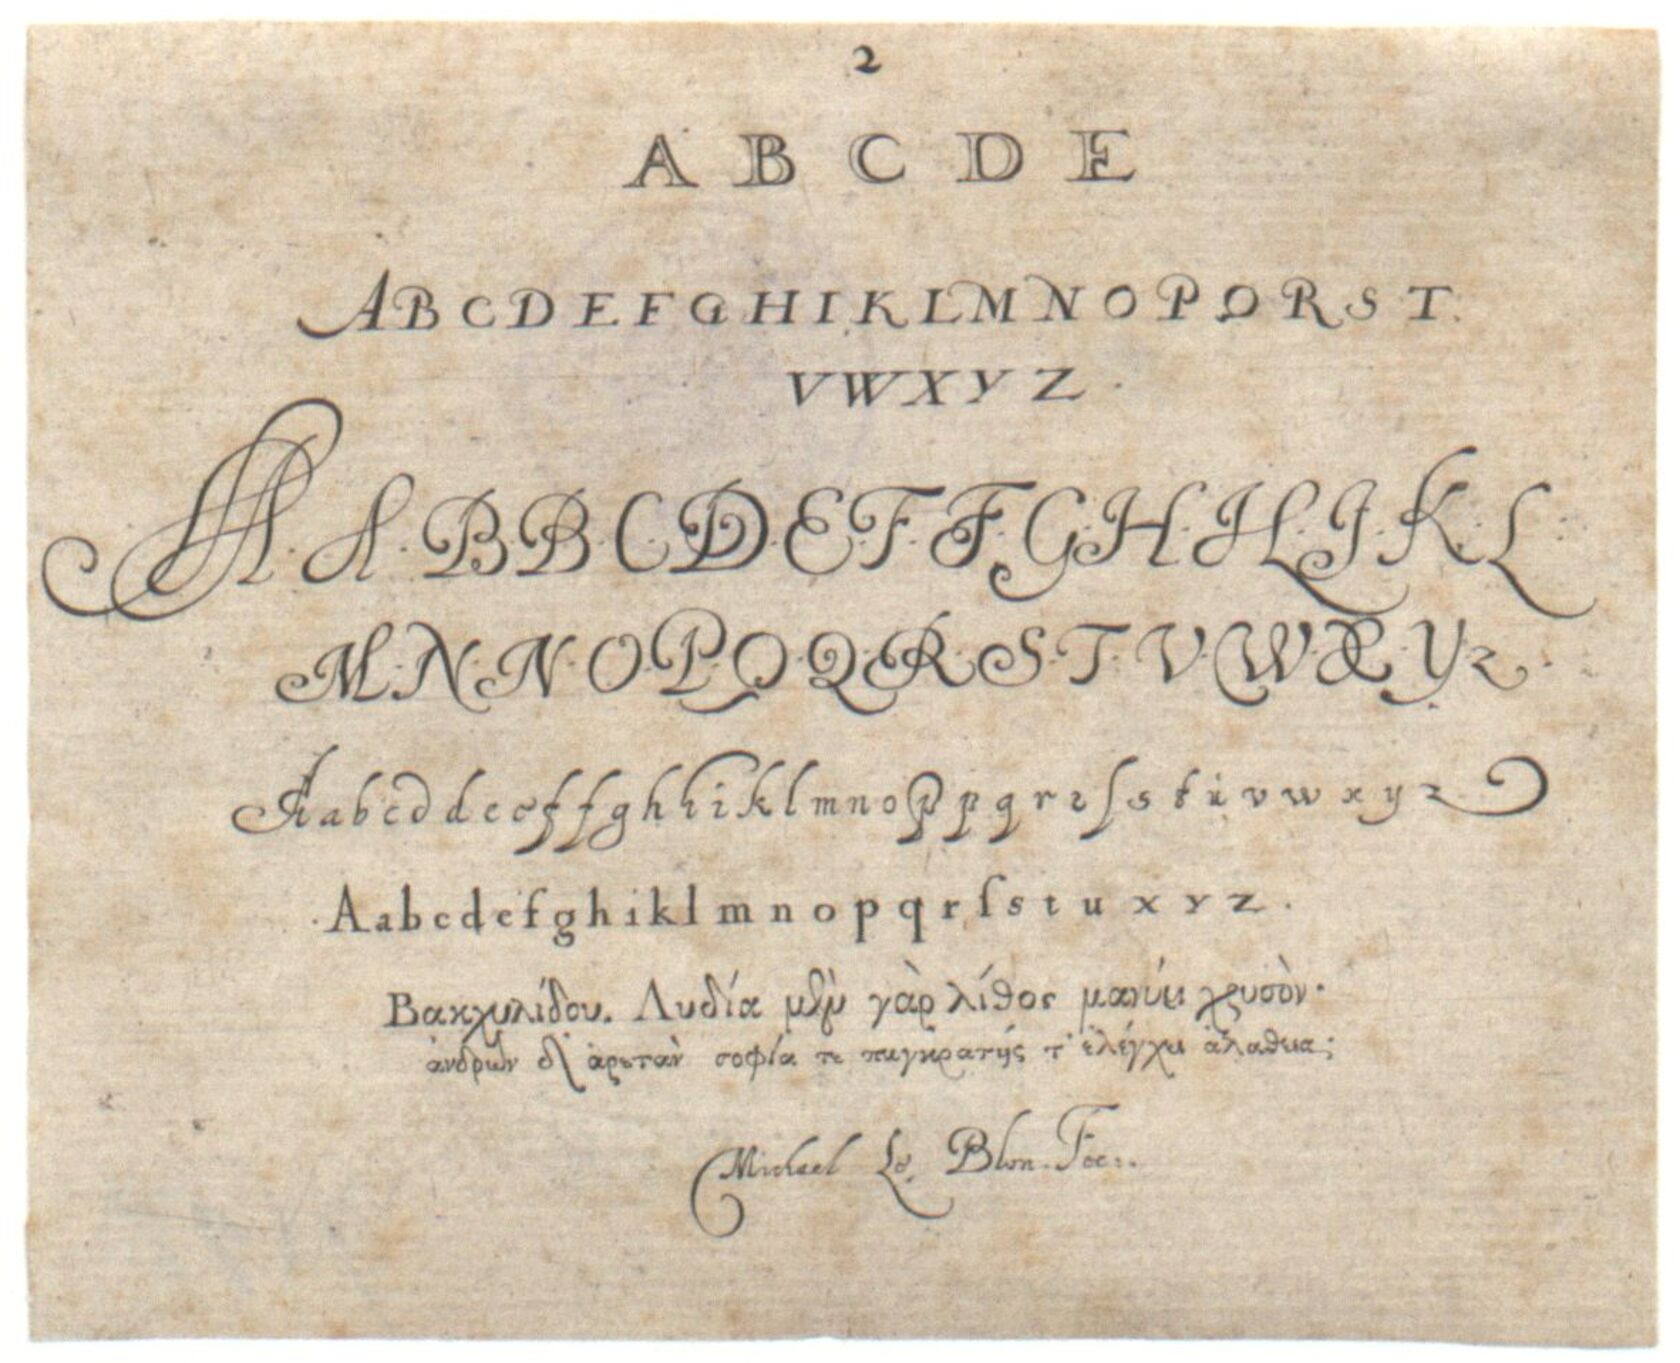 2
A B C D E
A B C D E F G H I K L M N O P Q R S T.
V W X Y Z.
A A. A. B B C. D. E. F. F. G. H. H. I. K. L.
M. N. N. O. P. Q. Q. R. S. T. V. W. X. Y z.
A a b c d d e e f f g h h i k l m n o p p q r r ſ s t u v w x y z
A a b c d e f g h i k l m n o p q r ſ s t u x y z.
Βακχυλίδου. Λυδία μὲν γὰρ λίθος μανύει χρυσὸν·
ἀνδρῶν δ' ἀρετὰν σοφία τε παγκρατής τ' ἐλέγχει ἀλαθεια;
Michael Le. Blon. Fec:.